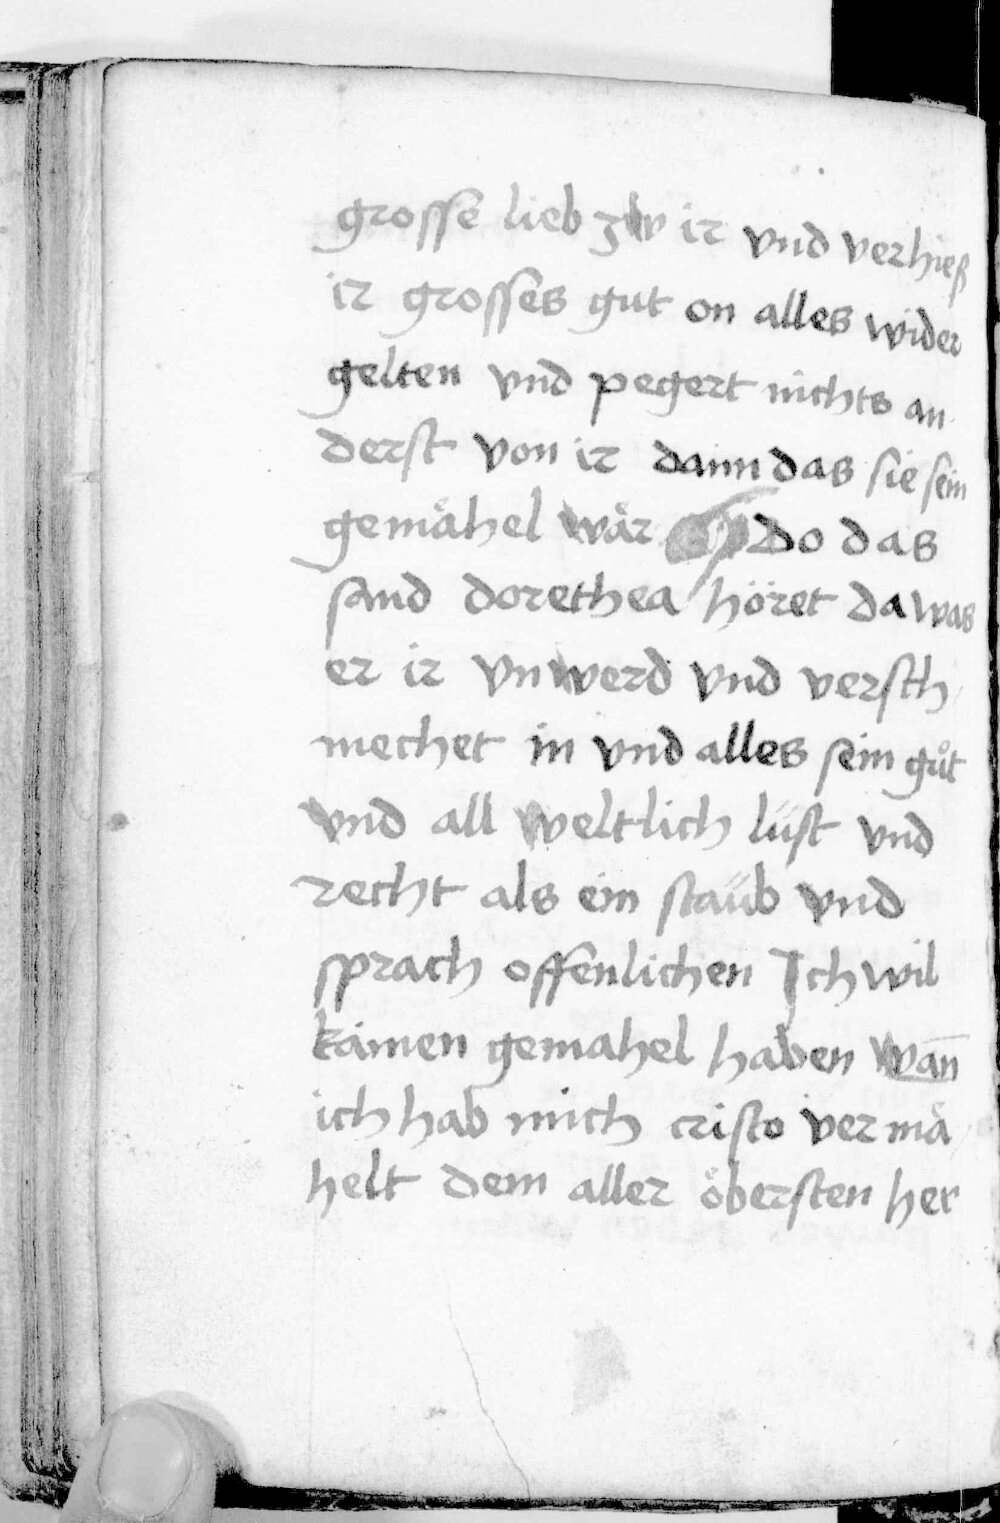 grosse lieb zw ir vnd verhieß
ir grosses gut on alles wider
gelten vnd pegert nichts an
derst von ir dann das sie sein
gemåhel wår Do das
sand dorethea höret da was
er ir vnwerd vnd versch
mechet in vnd alles sein gůt
vnd all weltlich lust vnd
recht als ein staüb vnd
sprach offenlichen Ich wil
kainen gemahel haben wan̄
ich hab mich cristo vermå
helt dem aller öbersten her